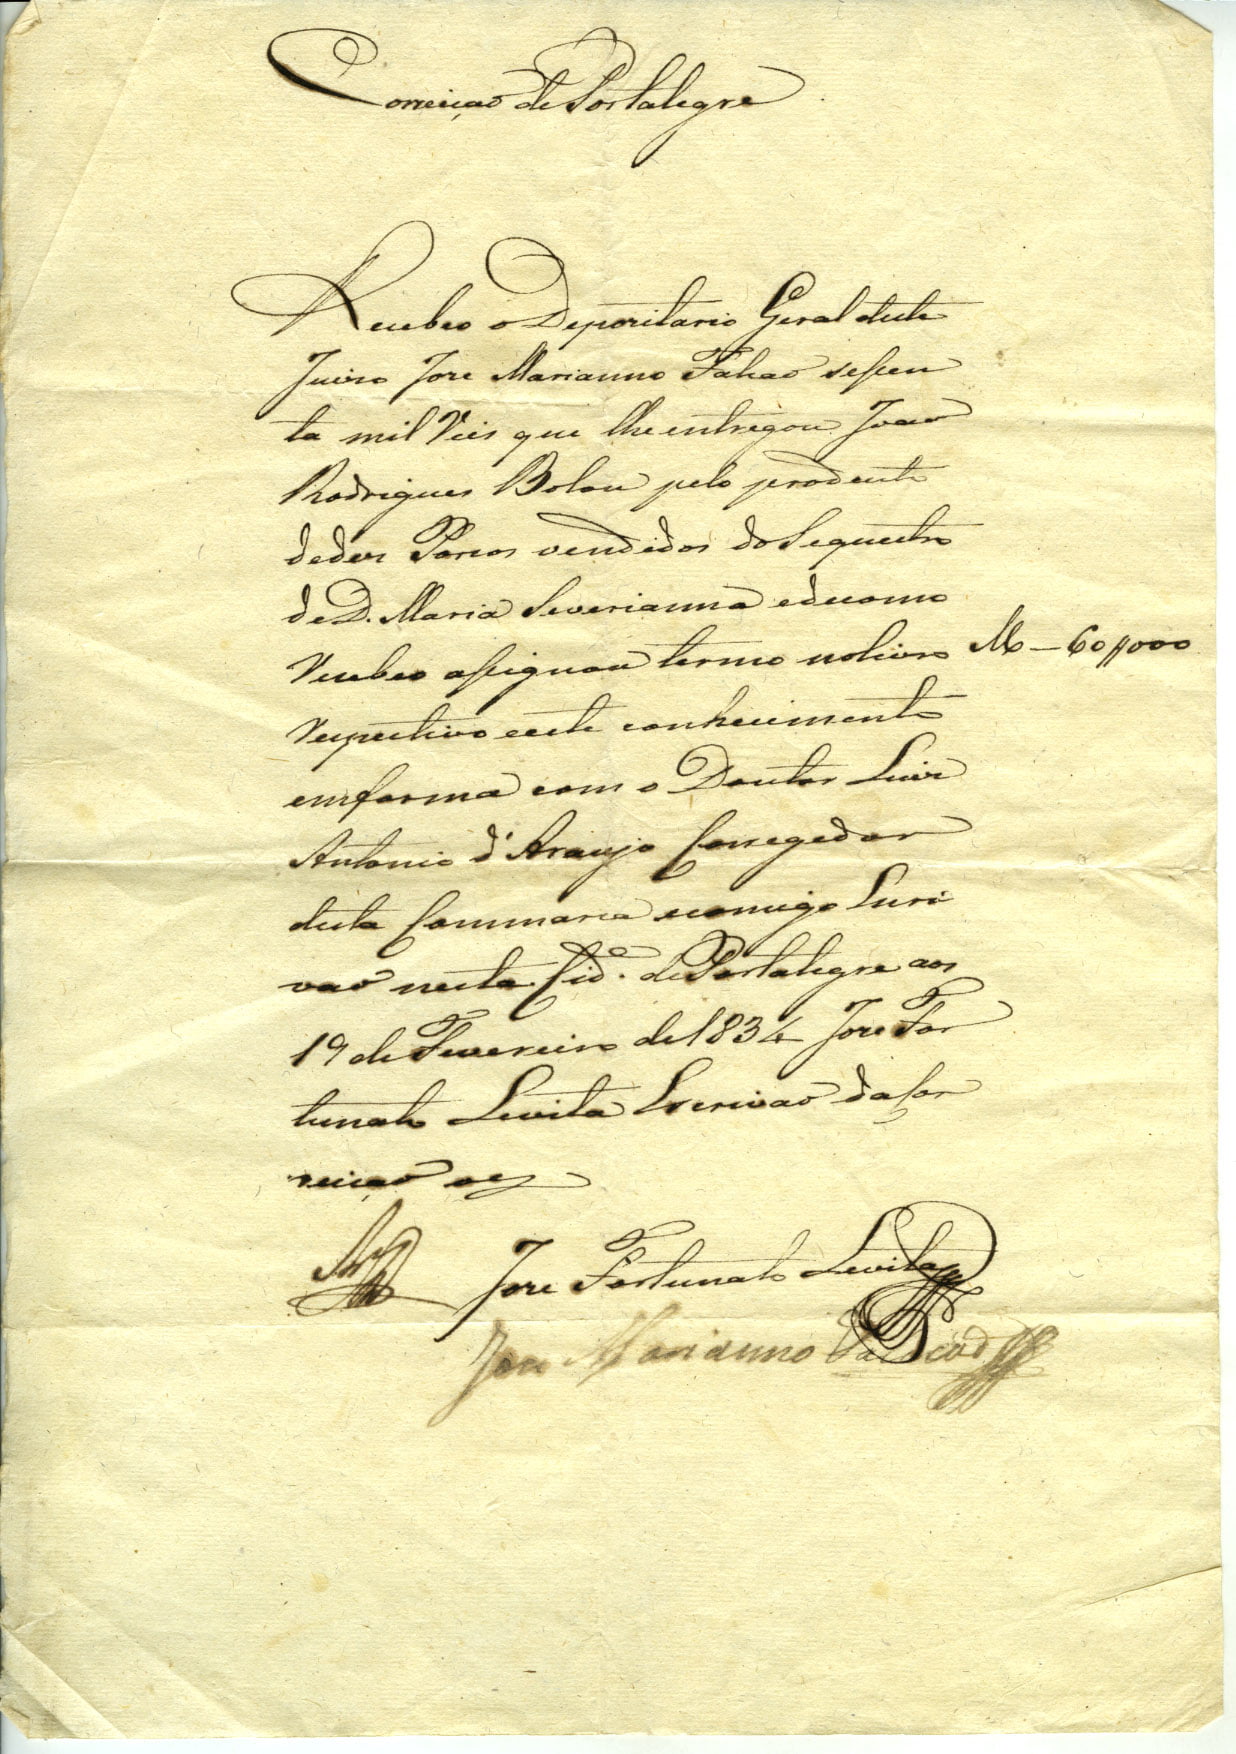 Correiçaõ de Portalegre
Recebeo o Depozitario Geral deste
Juizo Joze Marianno Falcaõ sessen
ta mil Reis que lhe entregou Joaõ
Rodrigues Bolou pelo producto
de dez Porcos vendidos do Sequestro
de D. Maria Severianna e de como
Recebeo assignou termo no livro Rs — 60$000
Respectivo e este conhecimento
em forma com o Doutor Luiz
Antonio d'Araujo Corregedor
desta Commarca e comigo Escri
vaõ nesta Cid.e de Portalegre aos
19 de Fevereiro de 1834 Joze For
tunato Levita Escrivaõ da Cor
reiçaõ
Joze Fortunato Levita
Joze Marianno Falcaõ